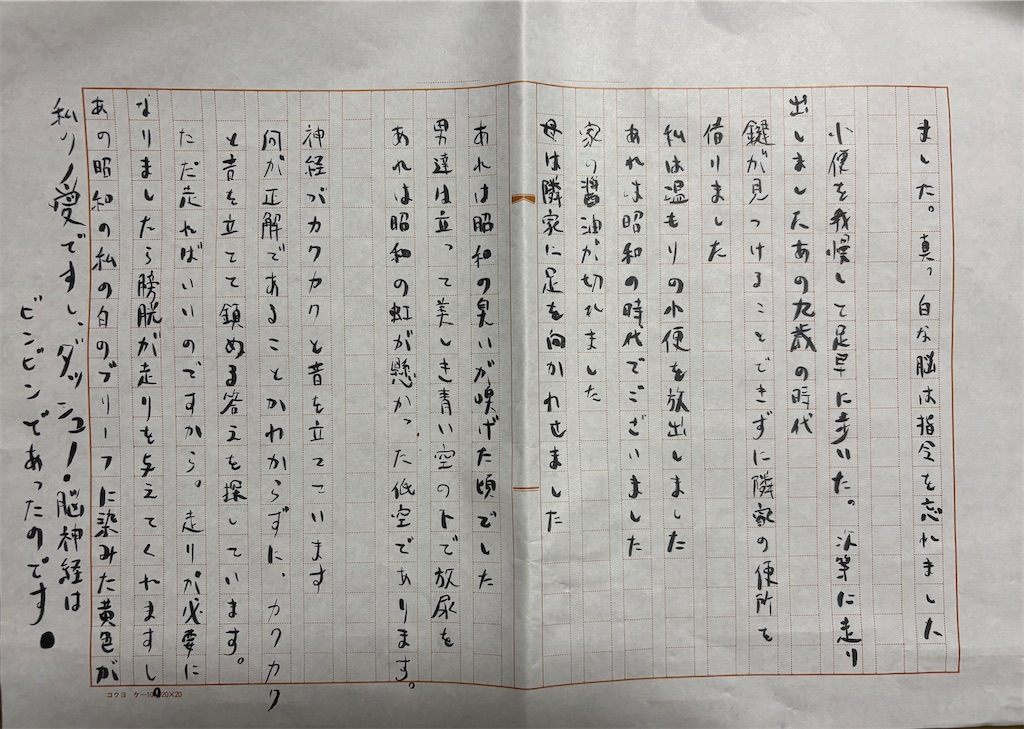 ました。真っ白な脳は指令を忘れました
小便を我慢して足早に歩いた。次等に走り
出しましたあの九歳の時代
鍵が見つけることできずに隣家の便所を
借りました
私は温もりの小便を放出しました
あれは昭和の時代でございました
家の醤油が切れました
母は隣家に足を向かわせました
あれは昭和の臭いが嗅げた頃でした
男達は立って美しき青い空の下で放尿を
あれは昭和の虹が懸かった低空であります。
神経がカクカクと音を立てています
何が正解であることかわからずに、カクカク
と音を立てて鎮める答えを探しています。
ただ走ればいいのですから。走りが必要に
なりましたら膀胱が走りを与えてくれますし。
あの昭和の私の白のブリーフに染みた黄色が
私の愛ですし、ダッシュ!脳神経は
ビンビンであったのです。
コクヨ ケー10 20×20